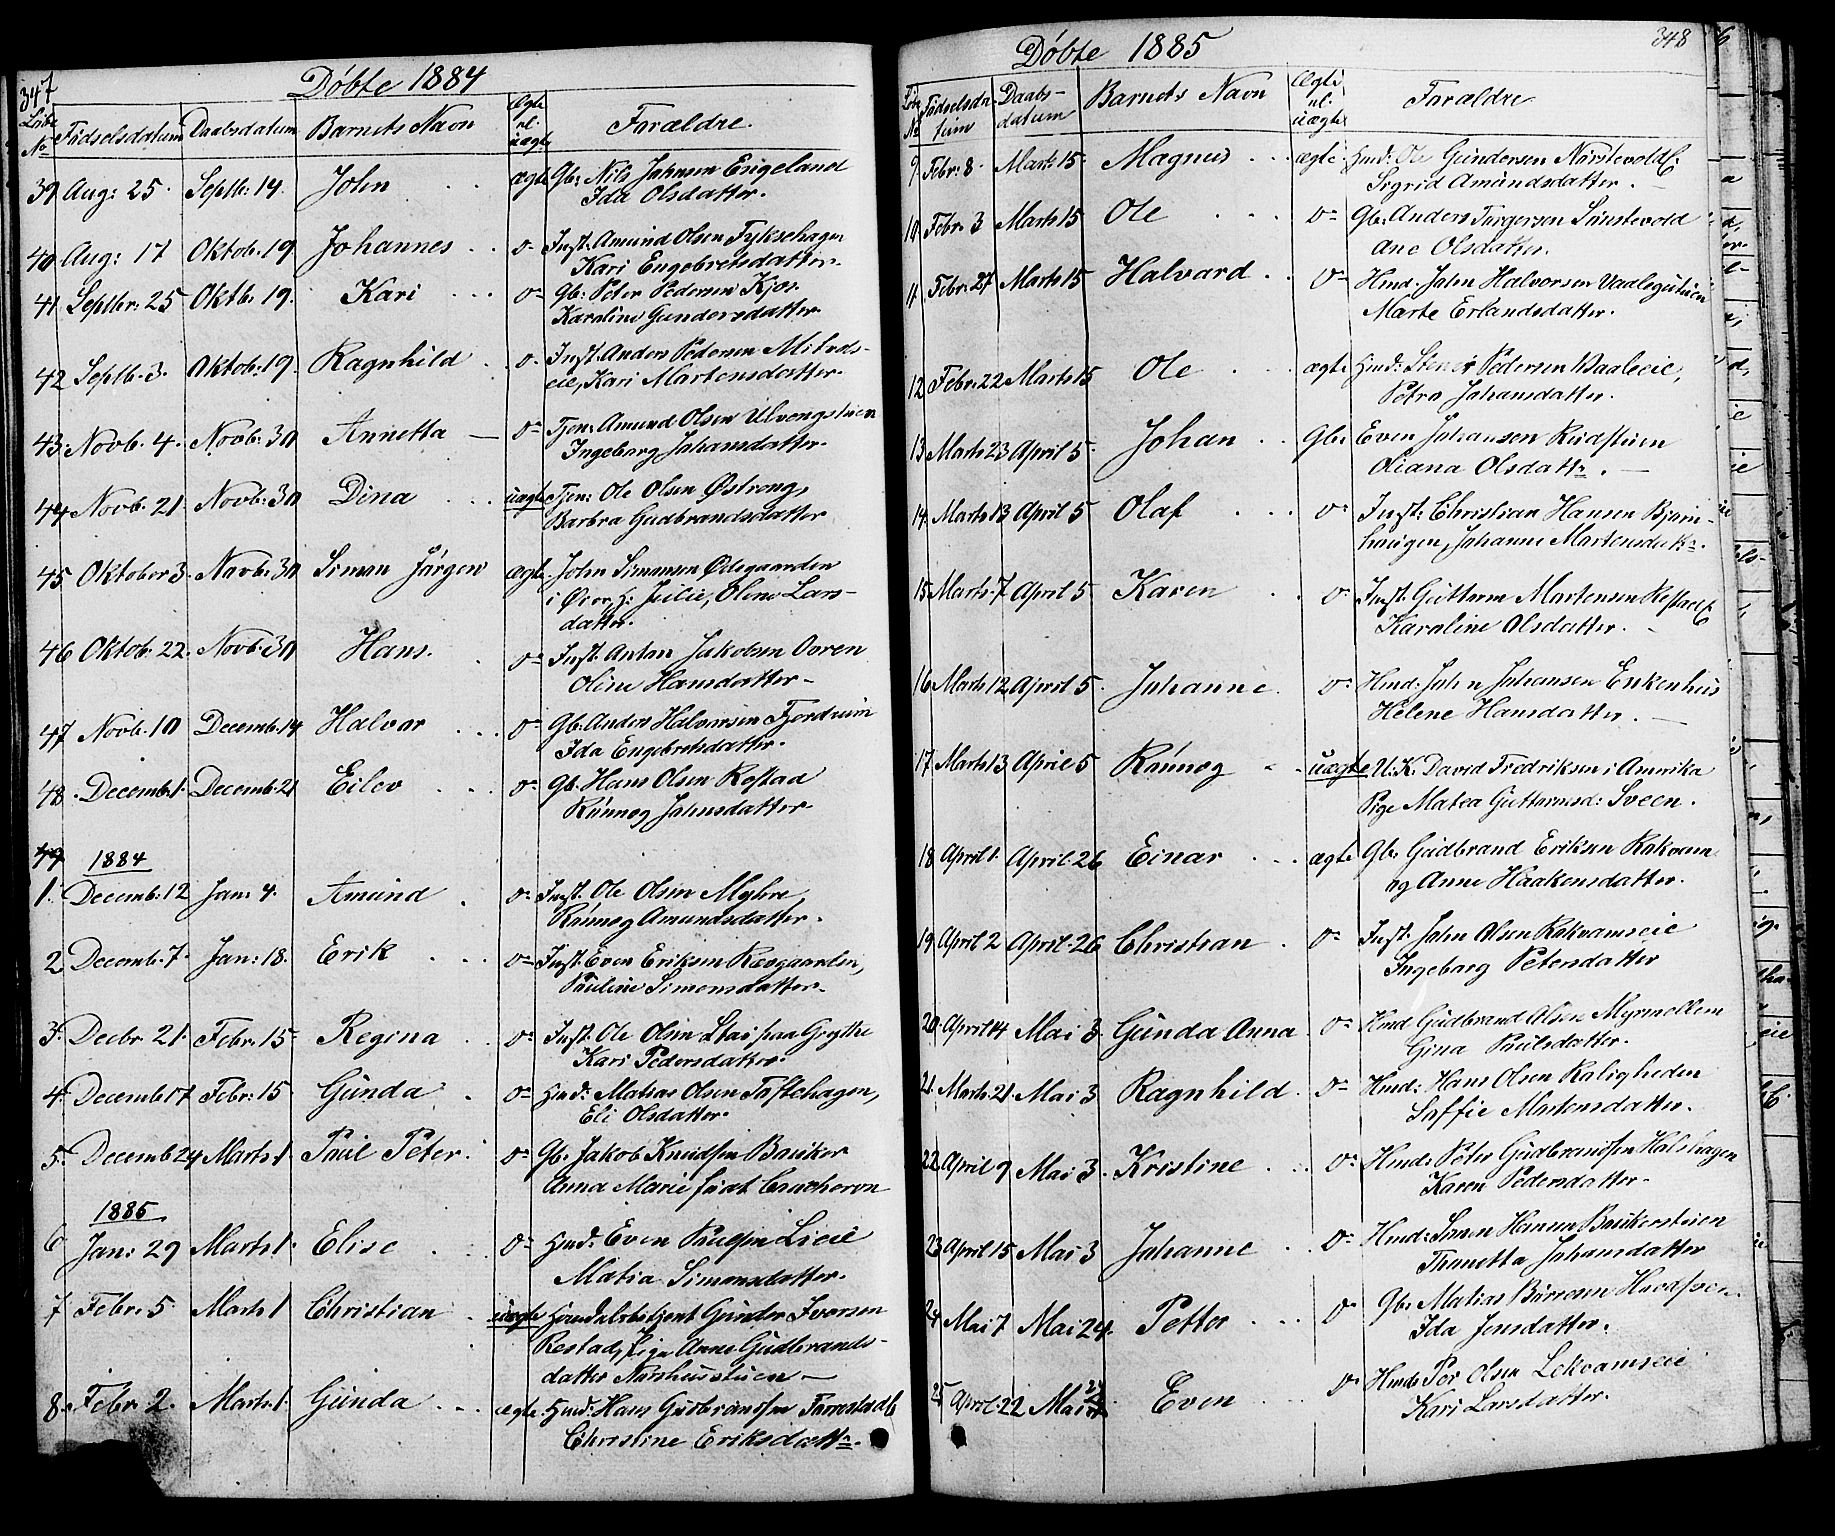 347
Döbte 1884
Löbe No Födselsdatum Daabsdatum Barnets Navn Ægte el. uægte Forældre
39 Aug: 25. Septb: 14. John ægte Gb: Nils Johnsen Engeland
Ida Olsdatter.
40 Aug: 17 Oktob. 19 Johannes do Inst. Amund Olsen Fyksehagen
Kari Engebretsdatter.
41 Septbr: 25 Oktb. 19. Kari do Gb: Peter Pedersen Kjos
Karoline Gundersdatter
42 Septb. 3. Oktob. 19. Ragnhild do Inst. Anders Pedersen Milvds-
eie, Kari Martensdatter.
43. Novb. 4. Novb: 30 Annetta do Tjen: Amund Olsen Ulvengstuen
Ingeborg Johansdatter.
44 Novb. 21. Novb: 30 Dina uægte Tjen: Ole Olsen Østreng,
Barbra Gudbrandsdatter
45 Oktober 3. Novb: 30 Simon Jörgen ægte. John Simonsen Ødegaarden
i Øier, h: Julie, Oline Lars-
datter.
46 Oktob. 22. Novb. 30 Hans. do Inst. Anton Jakobsen Ovren
Oline Hansdatter
47 Novb. 10 Decemb. 14 Halvar do Gb. Anders Halvorsen Fjerdrum
Ida Engebretsdatter.
48. Decemb. 1. Decemb. 21 Eilev do Gb. Hans Olsen Rostad
Rönnog Johnsdatter
49 1884
1. Decemb. 12 Jan: 4. Amund do Inst. Ole Olsen Myhre,
Rönnog Amundsdatter.
2 Decemb. 7. Jan: 18. Erik do Inst. Even Eriksen Roogaarden,
Pauline Simensdatter.
3. Decbr 21. Febr. 15 Regina do Inst. Ole Olsen Stai paa Grythe
Kari Pedersdatter
4. Decemb 17 Febr: 15 Gunda do Hmd: Matias Olsen Toftehagen,
Eli Olsdatter.
5. Decemb 24 Marts 1 Paul Peter. do Gb. Jakob Knudsen Bauker
Anna Marie födt Crucheron
1885
6 Jan: 29 Marts 1. Elise do Hmd. Even Paulsen Lieie
Matia Simensdatter.
7 Febr. 5. Marts 1 Christian uægte Handelsbetjent Gunder Iversen
Rostad, Pige Anne Gudbrands-
datter Norshusstuen
8. Febr. 2. Marts 1. Gunda ægte. Hmd. Hans Gudbrandsen
Christine Eriksdatt.
348
Döbte 1885
Löbe No Födselsdatum Daabs-datum Barnets Navn Ægte el. uægte Forældre
9 Febr: 8. Marts 15. Magnus ægte. Hmd: Ole Gundersen
Sigrid Amundsdatter.
10 Febr. 3 Marts 15 Ole do Gb. Anders Torgersen Sönstevold
Ane Olsdatter.
11 Febr. 27 Marts 15 Halvard do Hmd: John Halvorsen Vaalegutuen
Marte Erlandsdatter.
12 Febr. 22 Marts 15 Ole ægte Hmd: Stener Pedersen Vaaleeie,
Petra Johansdatter.
13 Marts 23 April 5. Johan Gb. Even Johansen Rudstuen
Oliana Olsdatt.
14. Marts 13 April 5 Olaf do Inst: Christian Hansen Bjørn-
haugen, Johanne Martensdatt.
15 Marts 7 April 5 Karen do Inst. Guttorm Martensen Rostad
Karoline Olsdatter.
16 Marts 12 April 5. Johanne do Hmd. John Johansen Enkenhus
Helene Hansdatter.
17 Marts 13 April 5 Rönnog uægte U. K. David Fredriksen i Amerika
Pige Matea Guttormsd: Sveen.
18 April 1. April 26 Einar ægte Gb. Gudbrand Eriksen Rokvam
og Anne Haakensdatter.
19 April 2 April. 26 Christian do Inst. John Olsen Rokvamseie
Ingeborg Petersdatter
20. April 14 Mai 3. Gunda Anna do Hmd Gudbrand Olsen Myrmellem
Gina Paulsdatter.
21. Marts 21. Mai 3 Ragnhild. do Hmd: Hans Olsen Roligheden
Soffie Martensdatter.
22. April 9 Mai 3. Kristine do Hmd: Peter Gudbrandsen Holshagen
Karen Pedersdatter
23 April 15 Mai 3 Johanne do Hmd: Simen Hansen Baukerstuen
Thonetta Johansdatter
24 Mai 7 Mai 24. Petter do Gb. Matias
Ida Jensdatter.
25 April. 22 Mai 24 Even do Hmd. Per Olsen Lekvamseie
Kari Larsdatter.